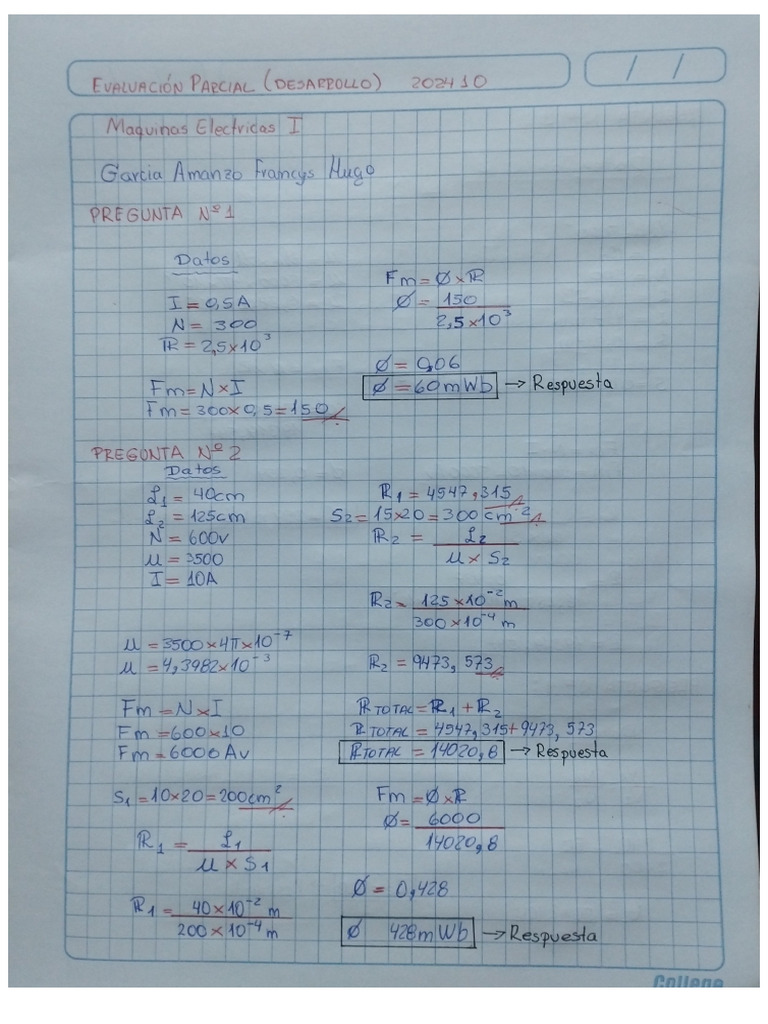 EVALUACIÓN PARCIAL (DESARROLLO) 202410
/ /
Maquinas Electricas I
Garcia Amanzo Francys Hugo
PREGUNTA Nº1
Datos
I = 0,5A
N = 300
ℝ = 2,5×10³
Fm = N×I
Fm = 300×0,5 = 150
Fm = Ø×ℝ
Ø = 150
2,5×10³
Ø = 0,06
Ø = 60mWb → Respuesta
PREGUNTA Nº2
Datos
L₁ = 40cm
L₂ = 125cm
N = 600v
u = 3500
I = 10A
u = 3500×4π×10⁻⁷
u = 4,3982×10⁻³
Fm = N×I
Fm = 600×10
Fm = 6000Av
S₁ = 10×20 = 200cm²
ℝ₁ = L₁
u × S₁
ℝ₁ = 40×10⁻² m
200×10⁻⁴ m
ℝ₁ = 4547,315
S₂ = 15×20 = 300cm²
ℝ₂ = L₂
u × S₂
ℝ₂ = 125×10⁻² m
300×10⁻⁴ m
ℝ₂ = 9473,573
ℝTOTAL = ℝ₁ + ℝ₂
ℝTOTAL = 4547,315+9473,573
ℝTOTAL = 14020,8 → Respuesta
Fm = Ø×ℝ
Ø = 6000
14020,8
Ø = 0,428
Ø 428mWb → Respuesta
College